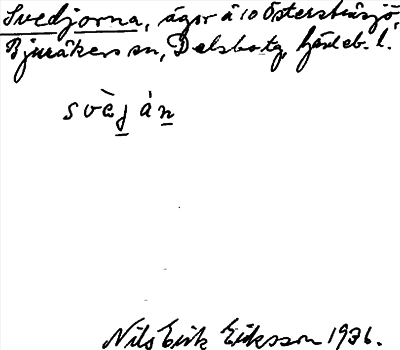 Svedjorna, ägor å 10 Österstråsjö,
Bjuråkers sn, Delsbo tg, Gävleb. l.
svèján
Nils Erik Eriksson 1936.